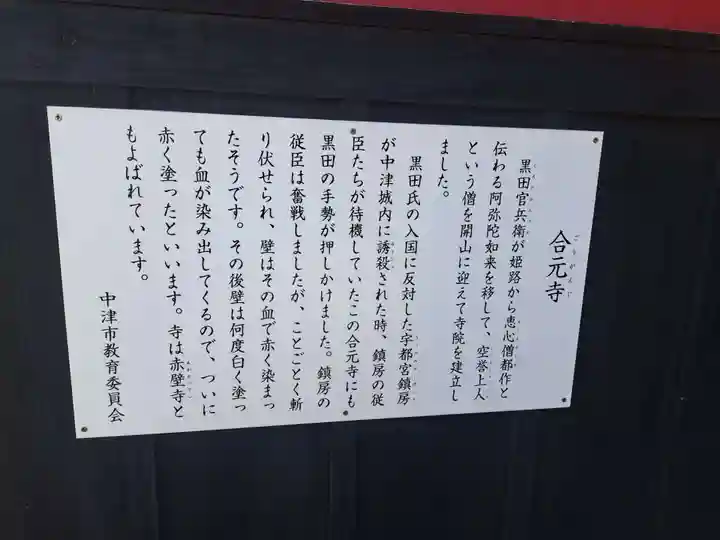 合元寺
黒田官兵衛が姫路から恵心僧都作と
伝わる阿弥陀如来を移して、空誉上人
という僧を開山に迎えて寺院を建立し
ました。
黒田氏の入国に反対した宇都宮鎮房
が中津城内に誘殺された時、鎮房の従
臣たちが待機していたこの合元寺にも
黒田の手勢が押しかけました。鎮房の
従臣は奮戦しましたが、ことごとく斬
り伏せられ、壁はその血で赤く染まっ
たそうです。その後壁は何度白く塗っ
ても血が染み出してくるので、ついに
赤く塗ったといいます。寺は赤壁寺と
もよばれています。
中津市教育委員会